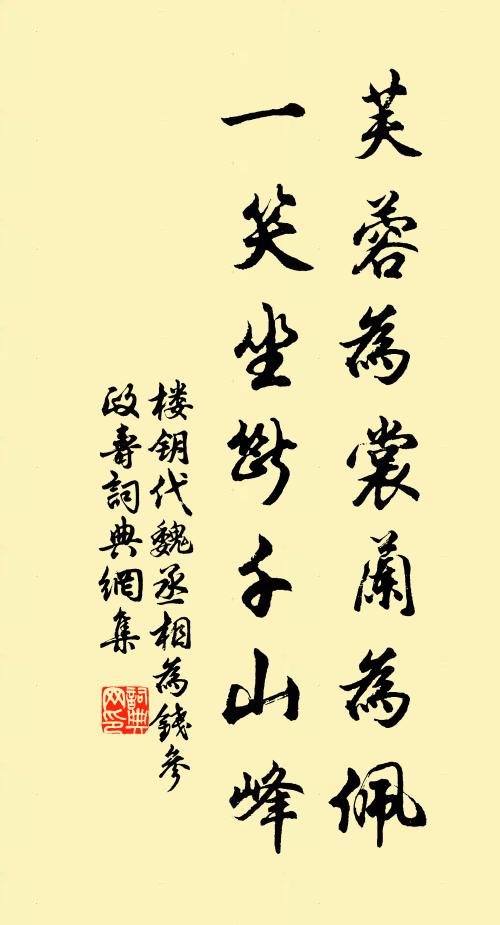 芙蓉為裳蘭為佩
一笑坐斷千山峰
楼钥代魏丞相為錢參
政壽詞典網集
詞典網印